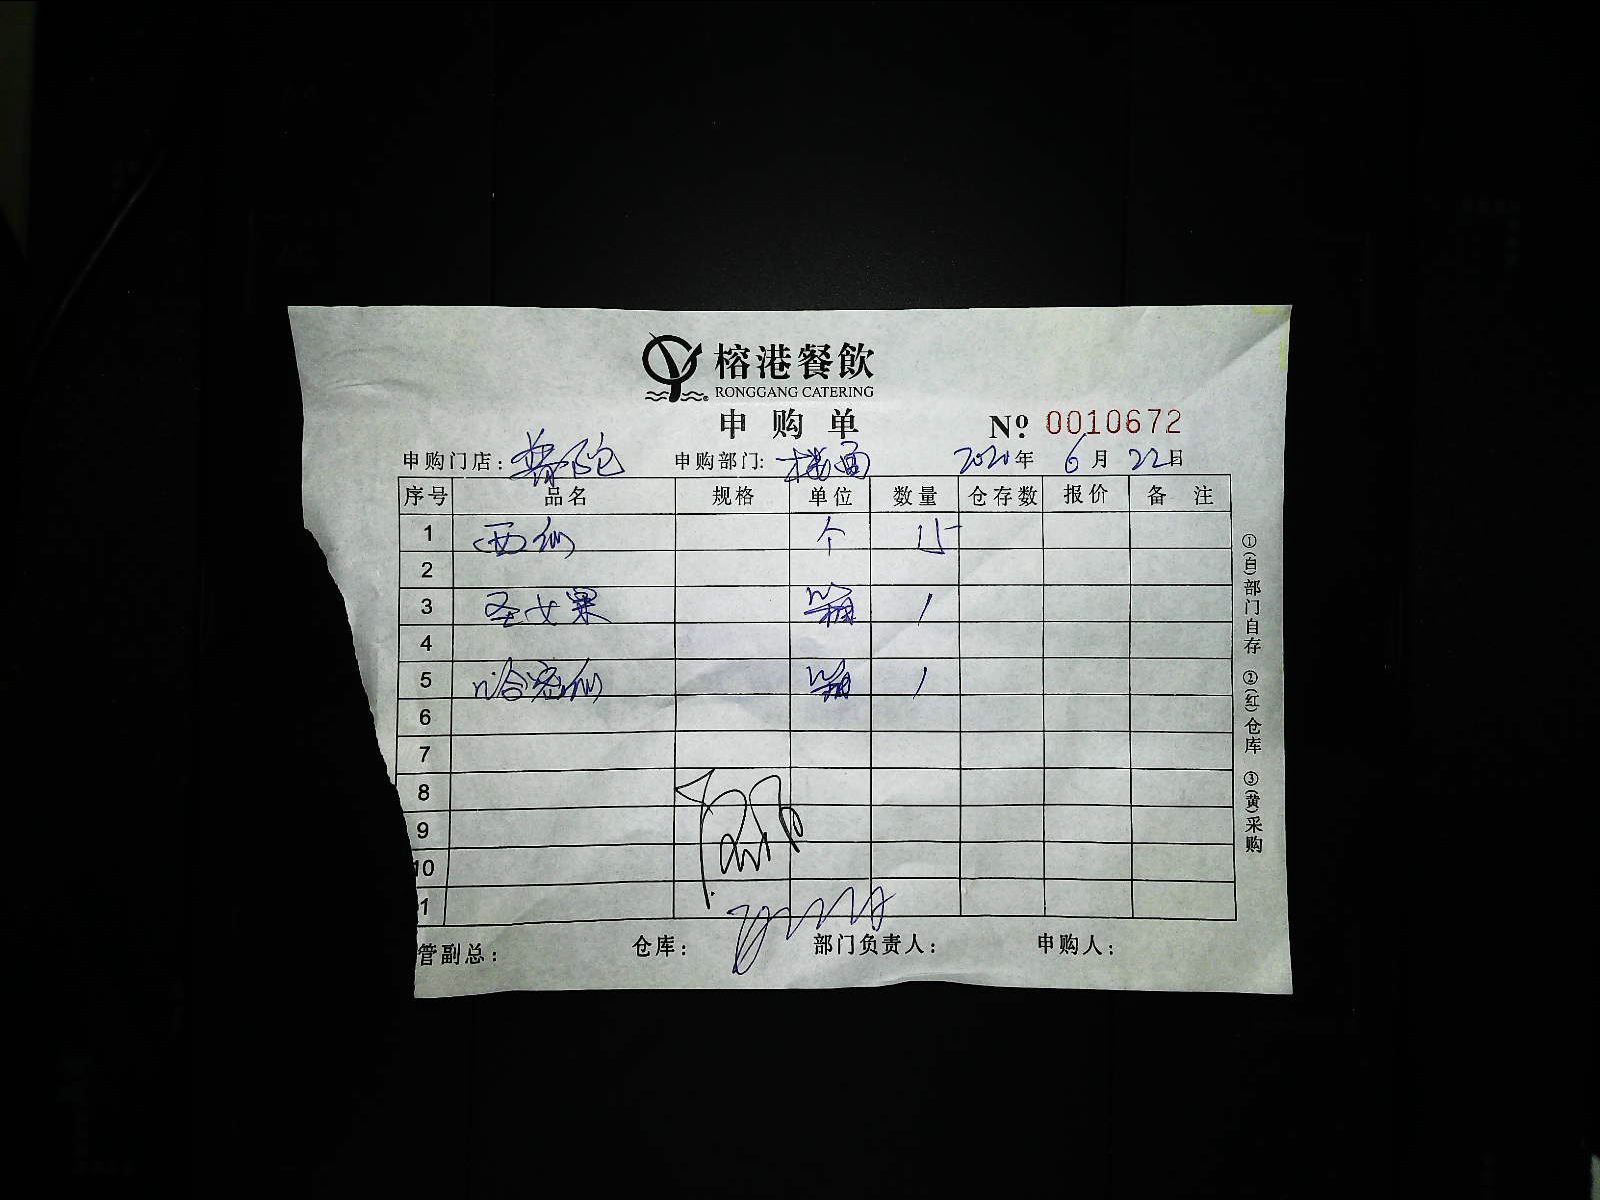 榕港餐飲
RONGGANG CATERING
申购单 Nº 0010672
申购门店：普陀 申购部门：楼面 2020年 6月 22日
序号 品名 规格 单位 数量 仓存数 报价 备 注
1 西瓜 个 15
2
3 圣女果 箱 1
4
5 哈密瓜 箱 1
6
7
8
9
10
1
管副总： 仓库： 部门负责人： 申购人：
①(白)部门自存 ②(红)仓库 ③(黄)采购